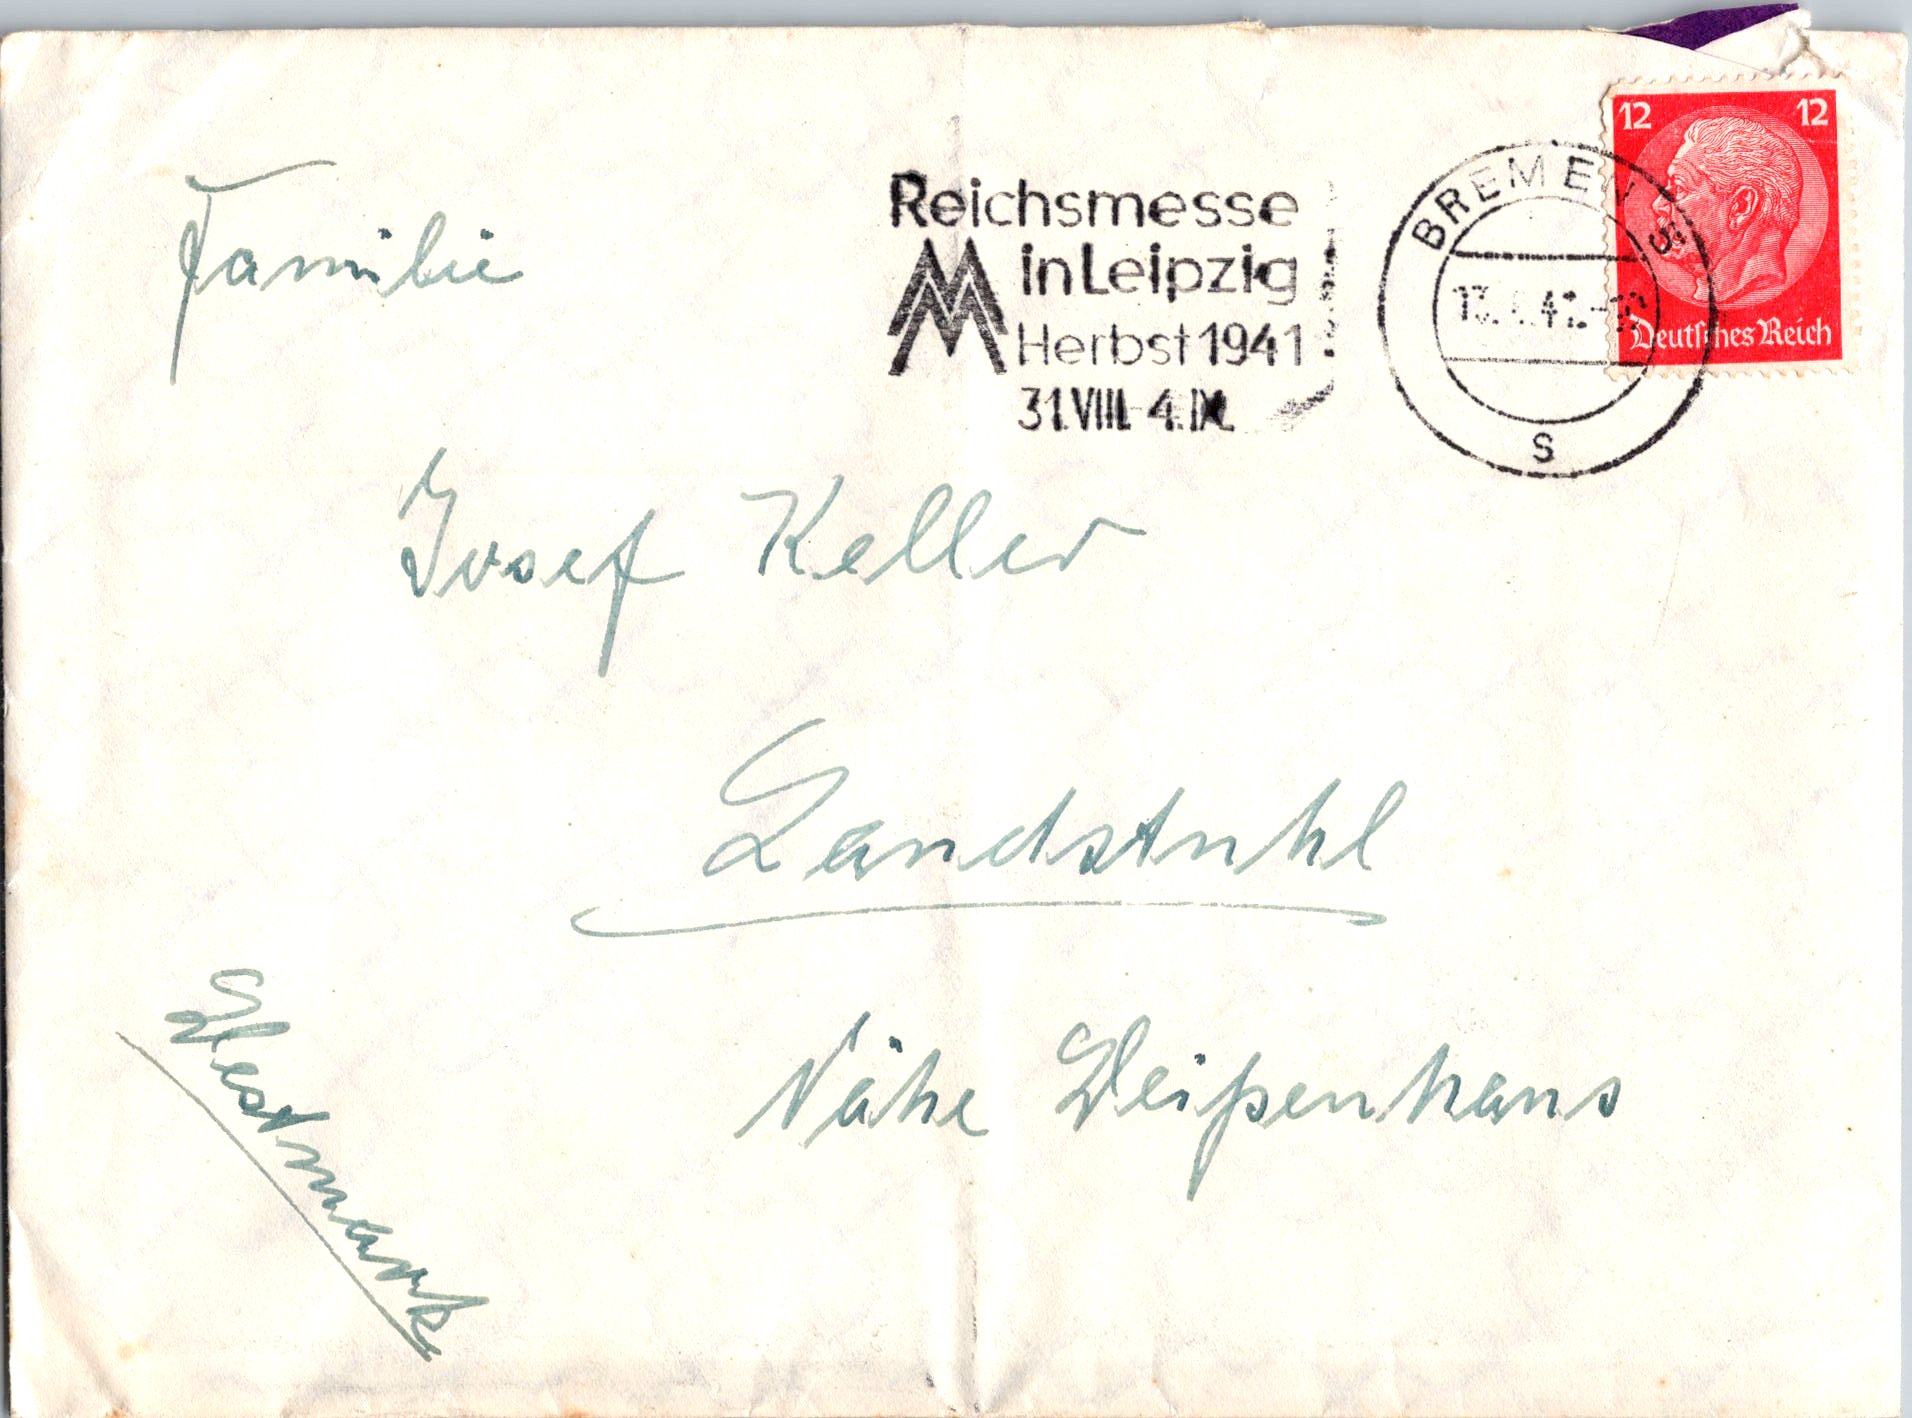 Familie
Josef Keller
Landstuhl
Nähe Weißenhaus
Westmark
Reichsmesse
in Leipzig
Herbst 1941
31.VIII.-4.IX.
BREMEN 5
s
12 12
Deutsches Reich